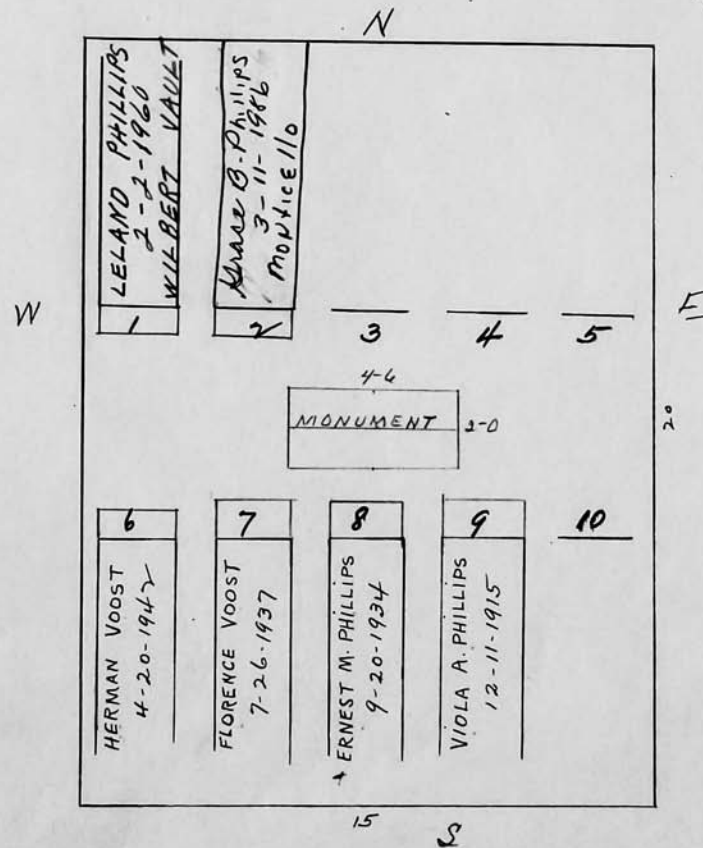 N
LELAND PHILLIPS
2-2-1960
WILBERT VAULT
Grace B. Phillips
3-11-1986
Monticello
W
E
1
2
3
4
5
4-6
MONUMENT
2-0
20
6
7
8
9
10
HERMAN VOOST
4-20-1942
FLORENCE VOOST
7-26-1937
ERNEST M. PHILLIPS
9-20-1934
VIOLA A. PHILLIPS
12-11-1915
15
S